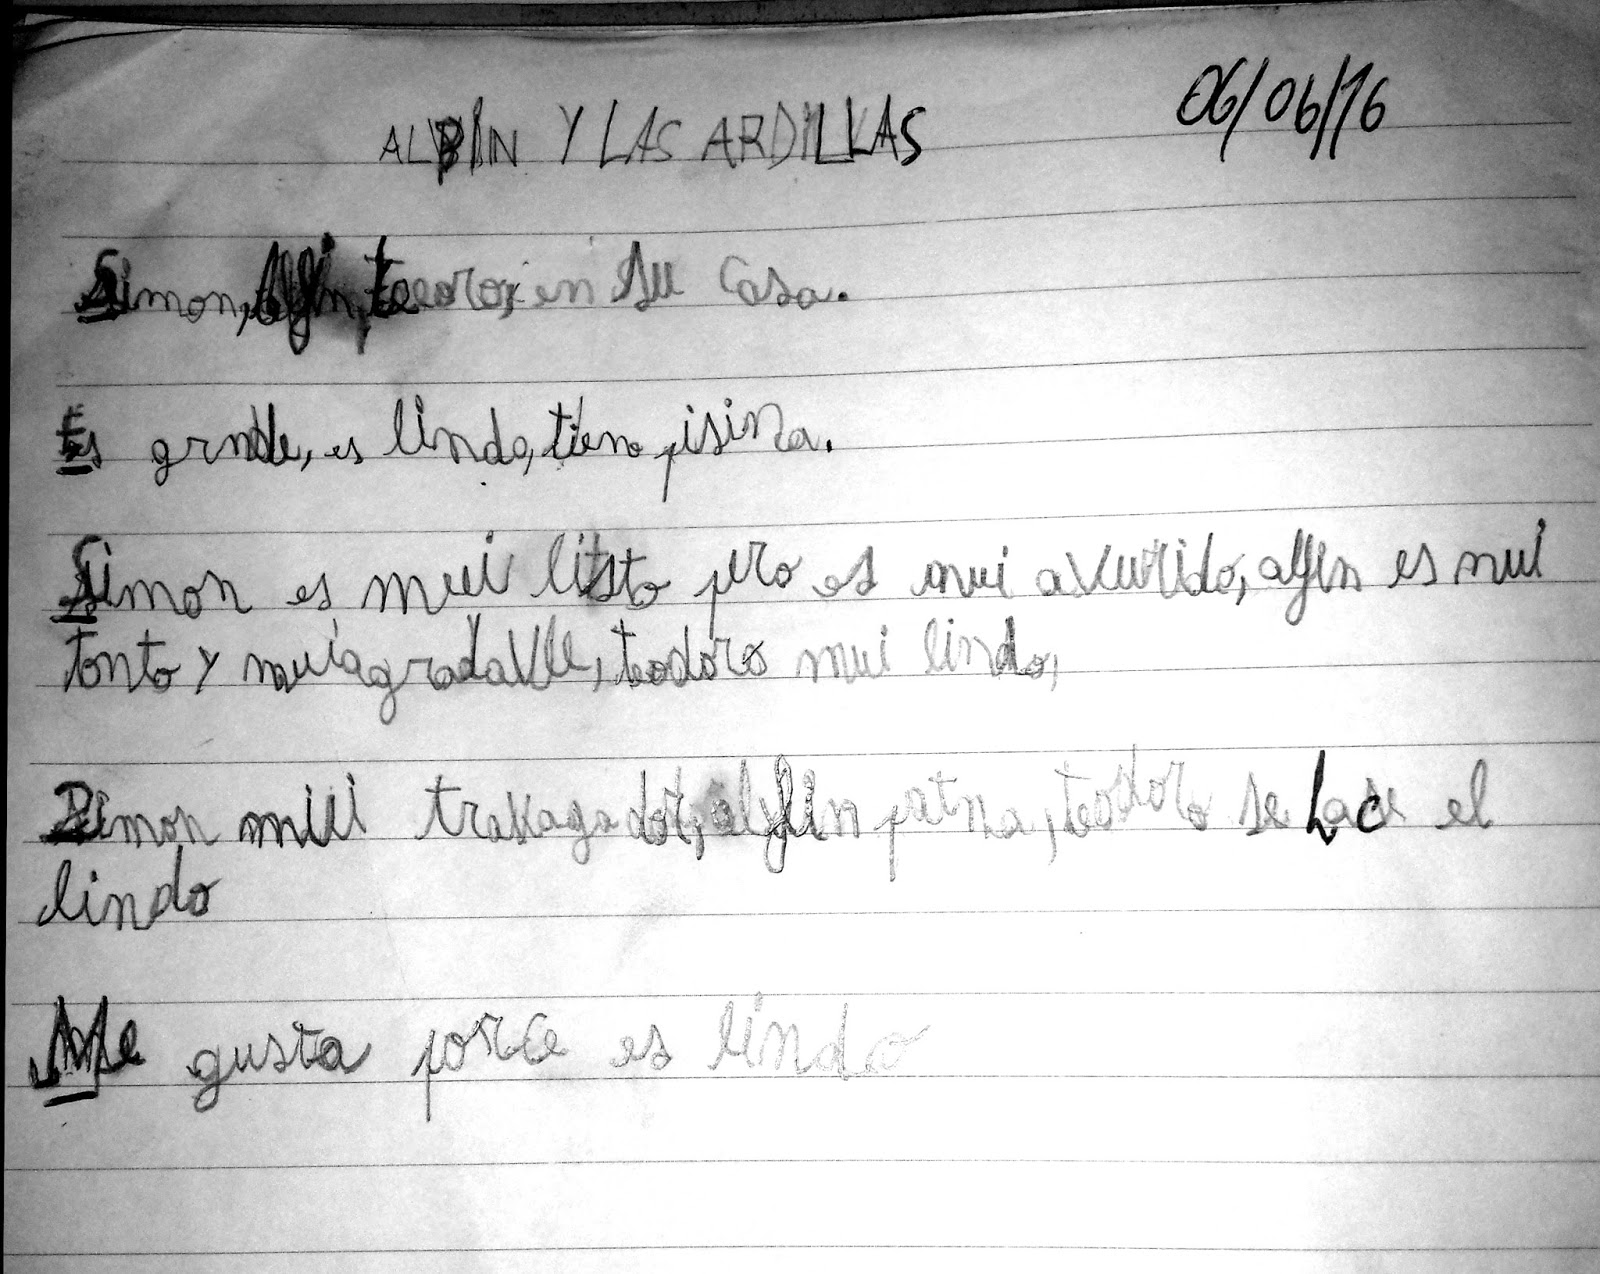 ALVIN Y LAS ARDILLAS 06/06/16
Simon, alfin, teeoro, en su casa.
Es grnde, es lindo, tiene pisina.
Simon es mui litsto pero es mui avurrido, alfin es mui
tonto y mui agradavle, teodoro mui lindo,
Simon mui travagador, alfin patna, teodoro se hase el
lindo
Me gusta porce es lindo